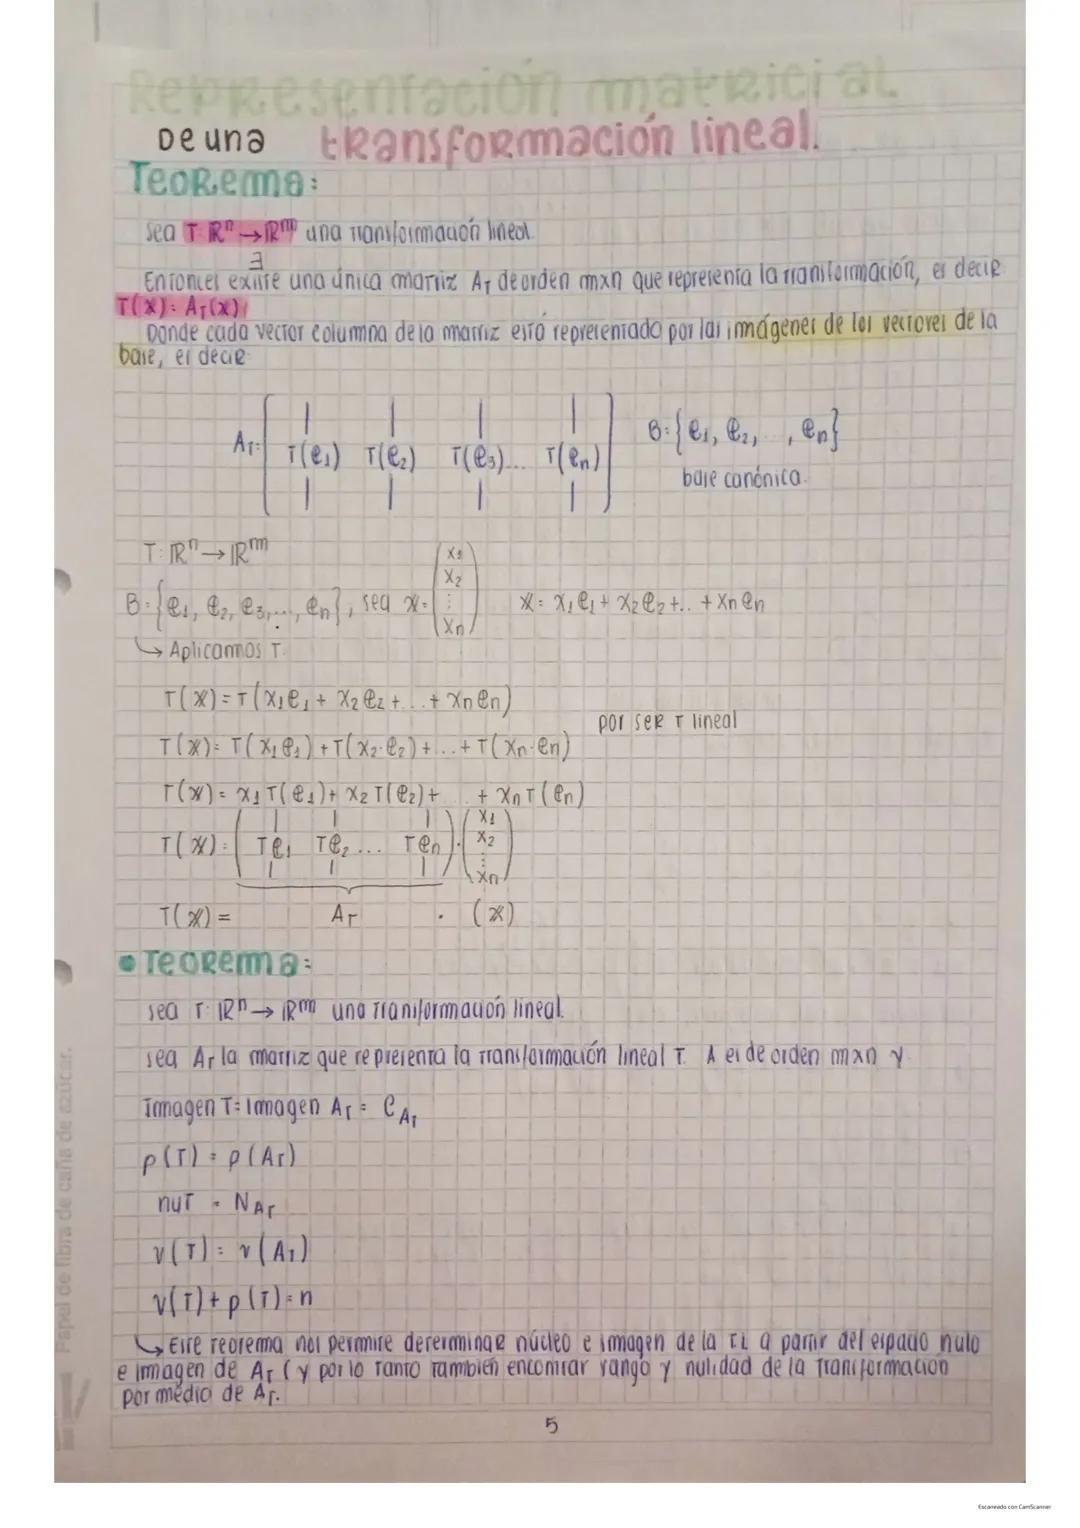 Representación matricial
De una transformación lineal.
Teorema:
Sea T: ℝⁿ → ℝᵐ una transformación lineal.
∃
Entonces existe una única matriz A_T de orden mxn que representa la transformación, es decir
T(x) = A_T(x)
Donde cada vector columna de la matriz está representado por las imágenes de los vectores de la
base, es decir
A_T = [ T(e₁) T(e₂) T(e₃) ... T(eₙ) ] B = {e₁, e₂, ..., eₙ}
base canónica.
T: ℝⁿ → ℝᵐ
B = {e₁, e₂, e₃, ..., eₙ}, sea x = (x₁ x₂ ⋮ xₙ) x = x₁e₁ + x₂e₂ + .. + xₙeₙ
↳ Aplicamos T.
T(x) = T(x₁e₁ + x₂e₂ + ... + xₙeₙ)
por ser T lineal
T(x) = T(x₁e₁) + T(x₂·e₂) + ... + T(xₙ·eₙ)
T(x) = x₁T(e₁) + x₂T(e₂) + ... + xₙT(eₙ)
T(x) = ( Te₁ Te₂ ... Teₙ ) · (x₁ x₂ ⋮ xₙ)
T(x) = A_T · (x)
• Teorema:
Sea T: ℝⁿ → ℝᵐ una transformación lineal.
Sea A_T la matriz que representa la transformación lineal T. A es de orden mxn y
Imagen T = Imagen A_T = C_A_T
ρ(T) = ρ(A_T)
nu T = N_A_T
ν(T) = ν(A_T)
ν(T) + ρ(T) = n
↳ Este teorema nos permite determinar núcleo e imagen de la TL a partir del espacio nulo
e imagen de A_T (y por lo tanto también encontrar rango y nulidad de la transformación
por medio de A_T.
5
Papel de fibra de caña de azúcar.
Escaneado con CamScanner